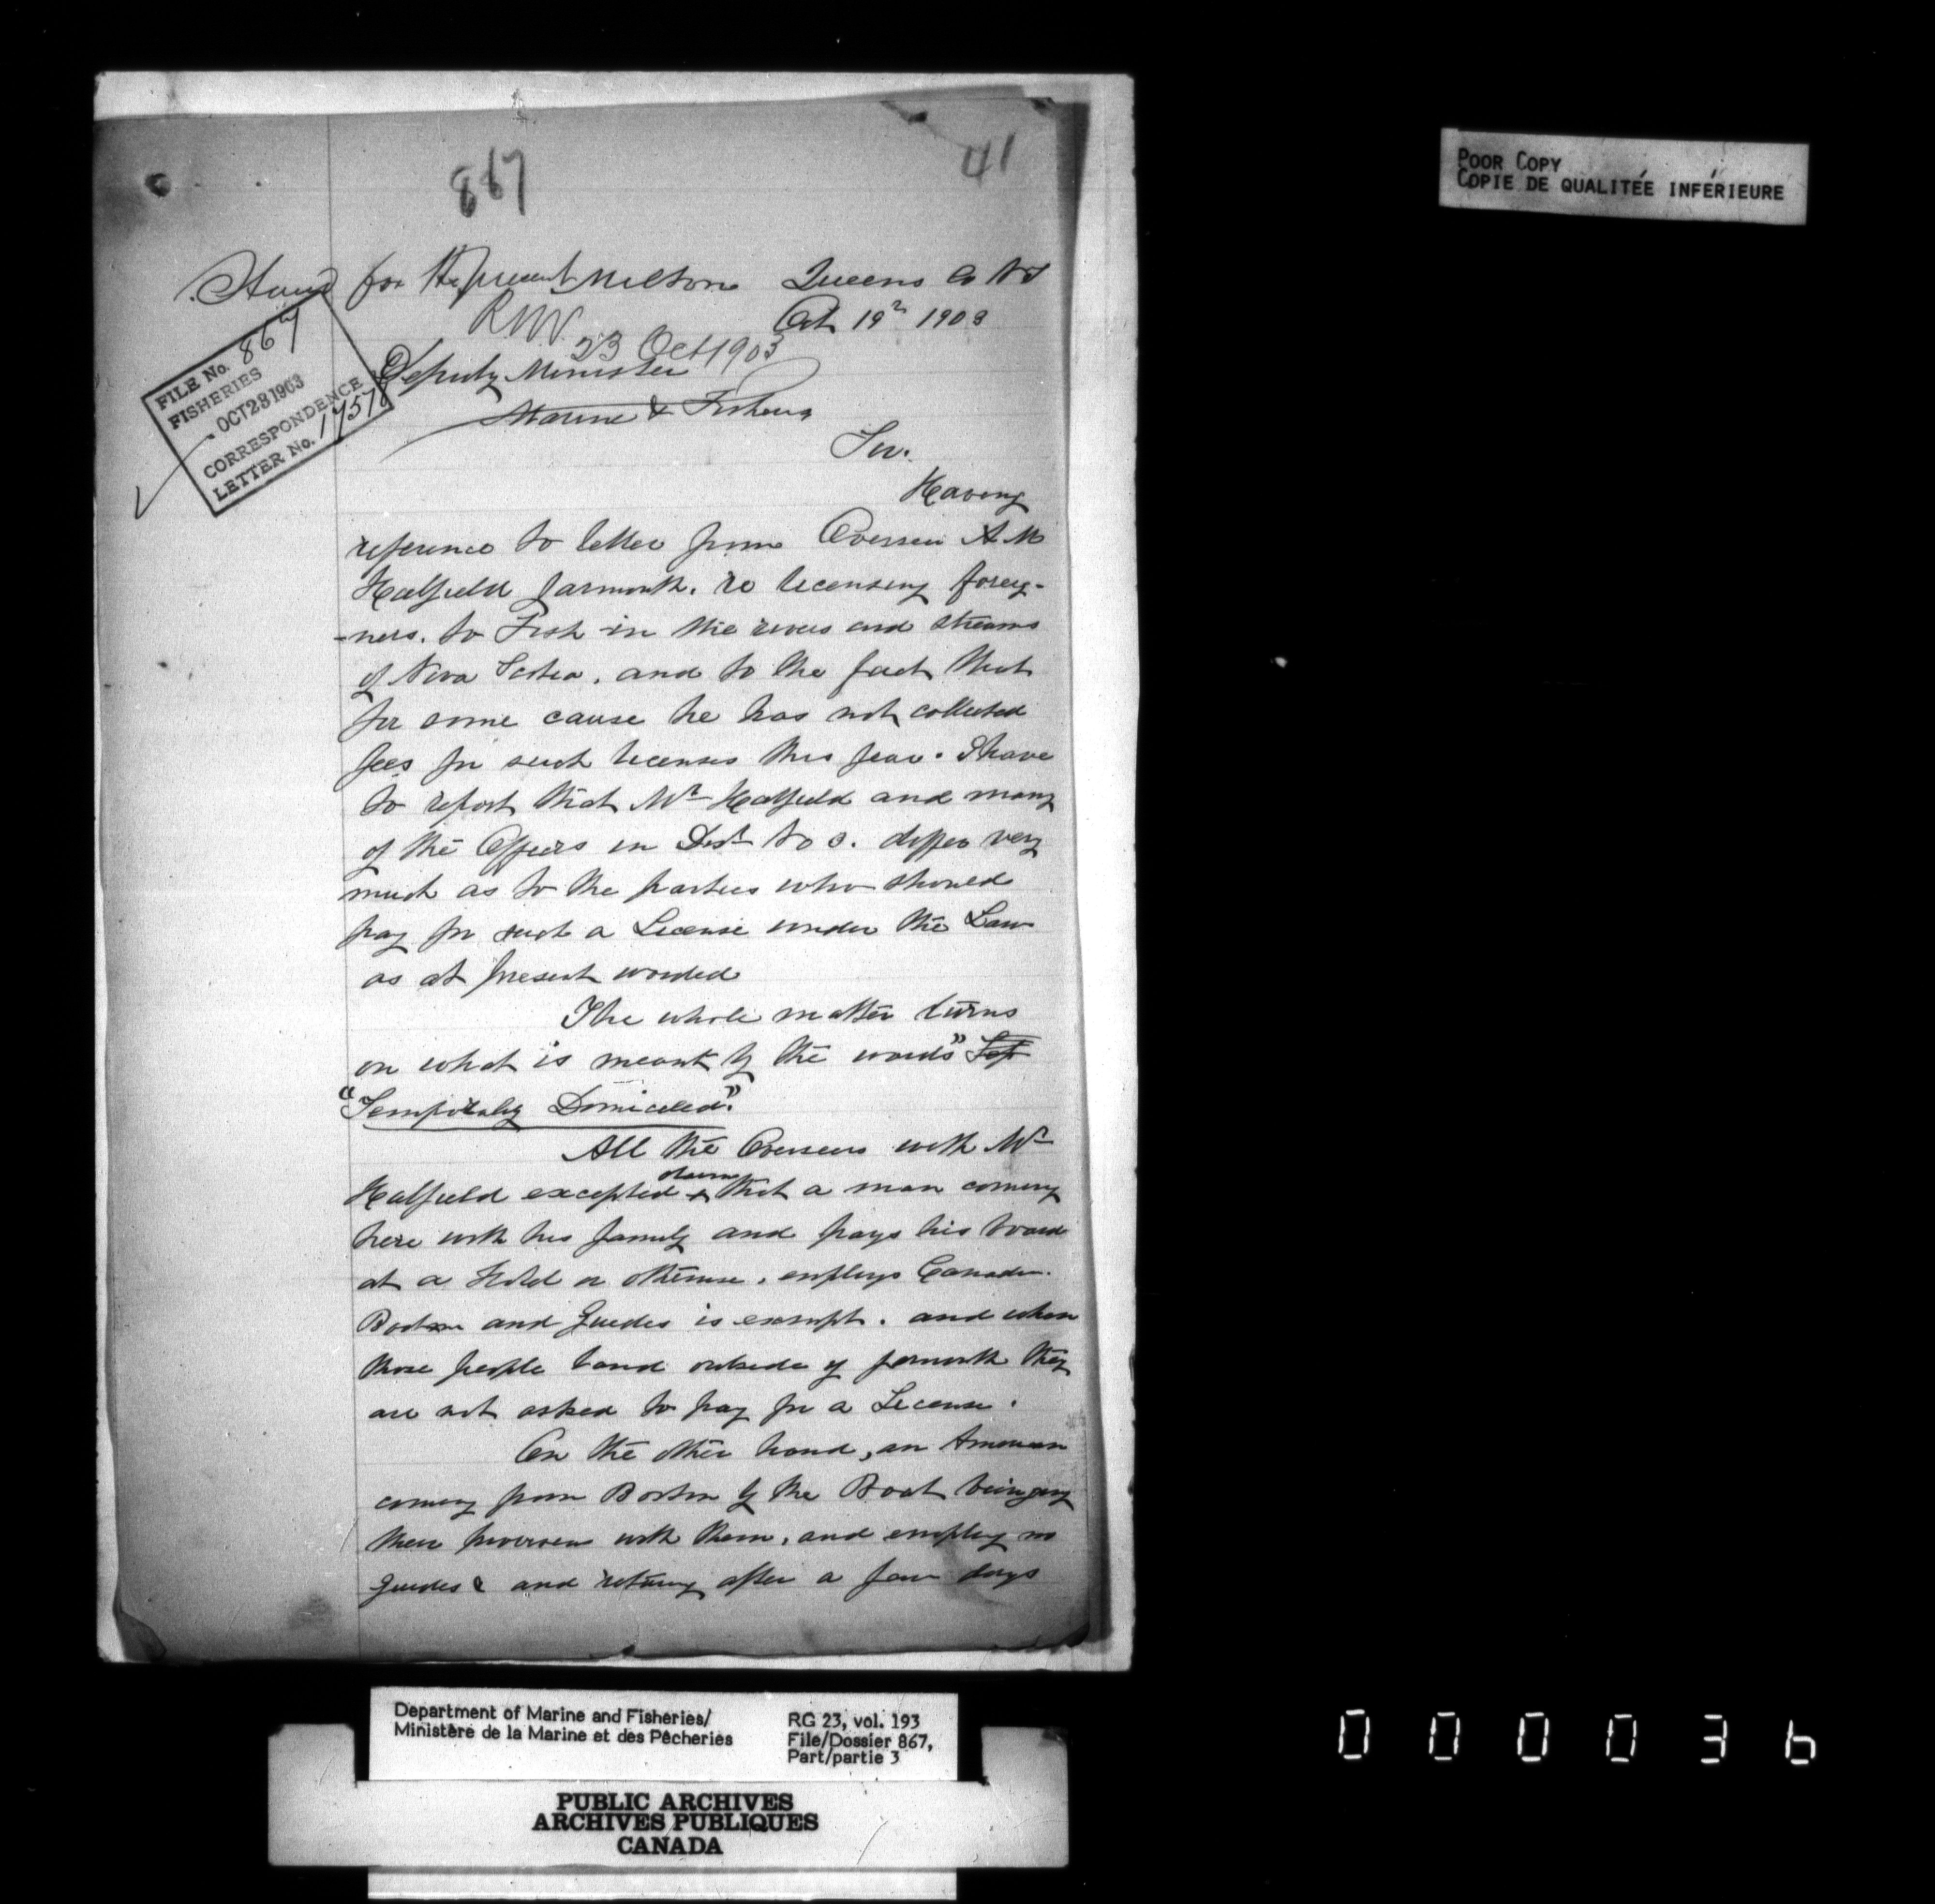 POOR COPY
COPIE DE QUALITÉE INFÉRIEURE
867
41
Stand for the present Milton Queens Co N S
Oct 19th 1903
R.N.V.
23 Oct 1903
FILE No. 867
FISHERIES
OCT 23 1903
CORRESPONDENCE
LETTER No. 17578
Deputy Minister
Marine & Fisheries
Sir.
Having
reference to letter from Overseer A. M
Hatfield Yarmouth. re licensing foreig-
-ners. to Fish in the rivers and streams
of Nova Scotia, and to the fact that
for some cause he has not collected
fees for such licenses this year. I have
to report that Mr Hatfield and many
of the Officers in Dist No 3. differ very
much as to the parties who should
pay for such a License under the Law
as at present worded
The whole matter turns
on what is meant by the words "
"Temporaly Domiciled."
All the Overseers with Mr
Hatfield excepted claim that a man coming
here with his family and pays his board
at a Hotel or otherwise, employs Canadian
Boatmen and Guides is exempt. and when
those people land outside of Yarmouth they
are not asked to pay for a License.
On the other hand, an American
coming from Boston by the Boat bringing
their provisions with them, and employ no
guides & and returning after a few days
Department of Marine and Fisheries/
Ministère de la Marine et des Pêcheries
RG 23, vol. 193
File/Dossier 867,
Part/partie 3
PUBLIC ARCHIVES
ARCHIVES PUBLIQUES
CANADA
000036